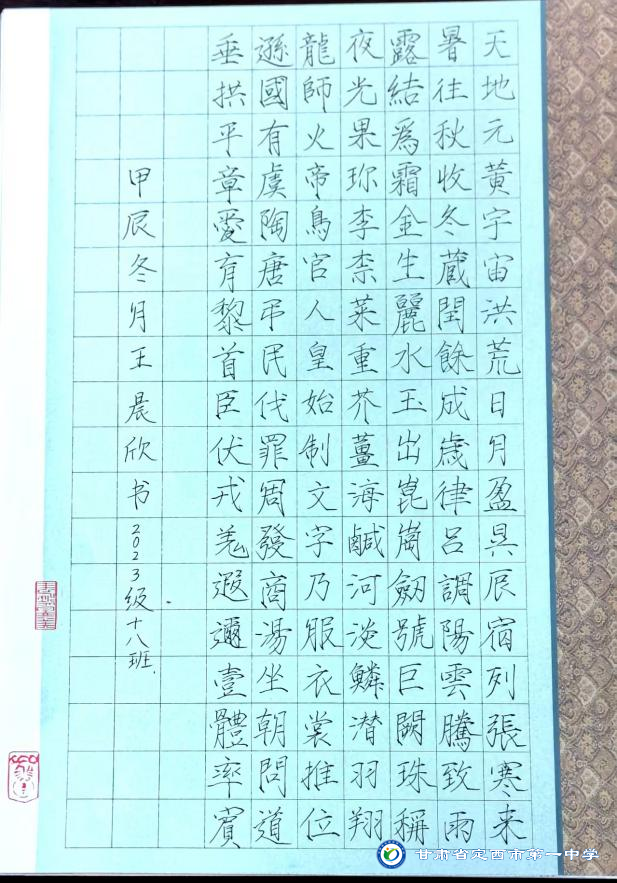 天地元黃宇宙洪荒日月盈昃辰宿列張寒来
暑往秋收冬蔵閏餘成歲律呂調陽雲騰致雨
露結爲霜金生麗水玉出崑崗劔號巨闕珠稱
夜光果珎李柰菜重芥薑海鹹河淡鱗潜羽翔
龍師火帝鳥官人皇始制文字乃服衣裳推位
遜國有虞陶唐弔民伐罪周發商湯坐朝問道
垂拱平章愛育黎首臣伏戎羌遐邇壹體率賓
甲辰冬月王晨欣书2023级十八班.
甘肃省定西市第一中学